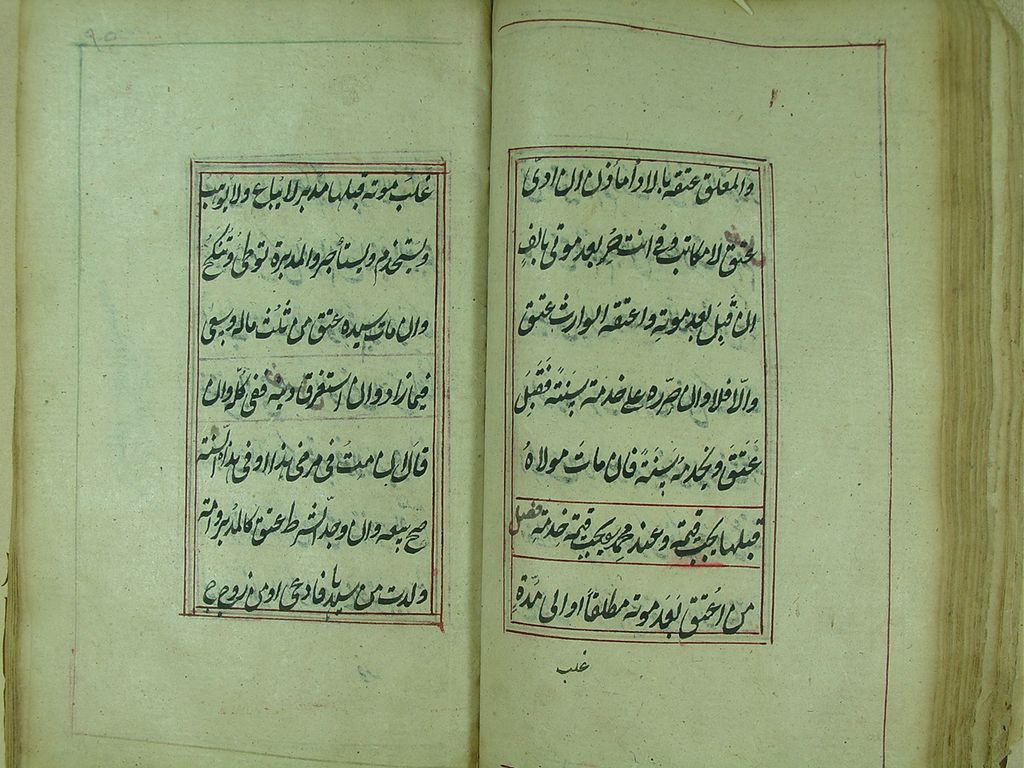 والمعلق عتقه بالاداء مأذون ان ادى
عتق لا مكاتب وفى انت حر بعد موتى بالف
ان قبل بعد موته واعتقه الوارث عتق
والا فلا وان حرره على خدمته سنة فقبل
عتق ويخدمه سنة فان مات مولاه
قبلها يجب قيمته وعند محمد يجب قيمة خدمته فصل
من اعتق بعد موته مطلقا او الى مدة
غلب
غلب موته قبلها مدبر لا يباع ولا يوهب
ويستخدم ويستأجر والمدبرة توطى وتنكح
وان مات سيده عتق من ثلث ماله وسعى
فيما زاد وان استغرقه دينه ففى كله وان
قال ان مت فى مرضى هذا او فى هذه السنة
صح بيعه وان وجد الشرط عتق كالمدبر وامة
ولدت من سيدها فادعى او من زوج